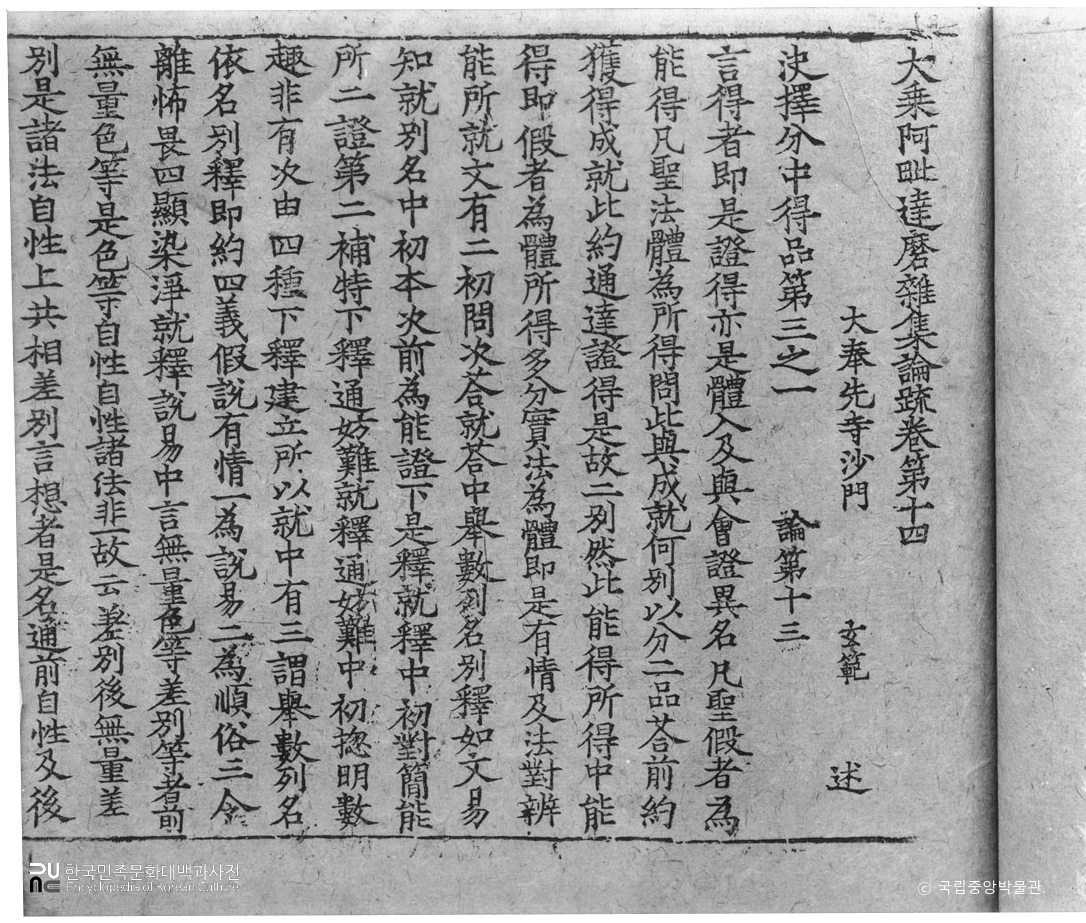 大乗阿毗達磨雜集論䟽卷第十四
大奉先寺沙門 玄範 述
決擇分中得品第三之一 論第十三
言得者即是證得亦是體入及與會證異名凡聖假者為
能得凡聖法體為所得問此與成就何別以分二品荅前約
獲得成就此約通達證得是故二別然此能得所得中能
得即假者為體所得多分實法為體即是有情及法對辨
能所就文有二初問次荅就荅中舉數列名別釋如文易
知就別名中初本次前為能證下是釋就釋中初對簡能
所二證第二補特下釋通妨難就釋通妨難中初揔明數
趣非有次由四種下釋建立所以就中有三謂舉數列名
依名別釋即約四義假說有情一為說易二為順俗三令
離怖畏四顯染淨就釋說易中言無量色等差別等者前
無量色等是色等自性自性諸法非一故云差別後無量差
別是諸法自性上共相差別言想者是名通前自性及後
한국민족문화대백과사전
Encyclopedia of Korean Culture
ⓒ 국립중앙박물관